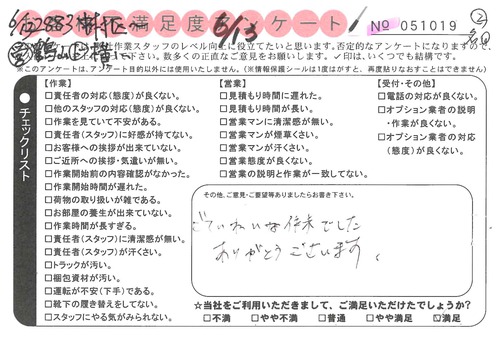 満足度アンケート! № 051019
作業スタッフのレベル向上に役立てたいと思います。否定的なアンケートになりますので、
下さい。数多くの正直なご意見をお願いします。✓印は、いくつでも結構です。
※このアンケートは、アンケート目的以外には使用いたしません。(※情報保護シールは1度はがすと、再度貼りなおすことはできません)
チェックリスト
【作業】
□責任者の対応(態度)が良くない。
□他のスタッフの対応(態度)が良くない。
□作業を見ていて不安がある。
□責任者(スタッフ)に好感が持てない。
□お客様への挨拶が出来ていない。
□ご近所への挨拶・気遣いが無い。
□作業開始前の内容確認がなかった。
□作業開始時間が遅れた。
□荷物の取り扱いが雑である。
□お部屋の養生が出来ていない。
□作業時間が長すぎる。
□責任者(スタッフ)に清潔感が無い。
□責任者(スタッフ)が汗くさい。
□トラックが汚い。
□梱包資材が汚い。
□運転が不安(下手)である。
□靴下の履き替えをしてない。
□スタッフにやる気がみられない。
【営業】
□見積もり時間に遅れた。
□見積もり時間が長い。
□営業マンに清潔感が無い。
□営業マンが煙草くさい。
□営業マンが汗くさい。
□営業態度が良くない。
□営業の説明と作業が一致してない。
【受付・その他】
□電話の対応が良くない。
□オプション業者の説明
・作業が良くない。
□オプション業者の対応
(態度)が良くない。
その他、ご意見・ご要望等ありましたらお書き下さい。
ていねいな作業でした
ありがとうございます。
☆当社をご利用いただきまして、ご満足いただけたでしょうか?
□不満 □やや不満 □普通 □やや満足 ☑満足